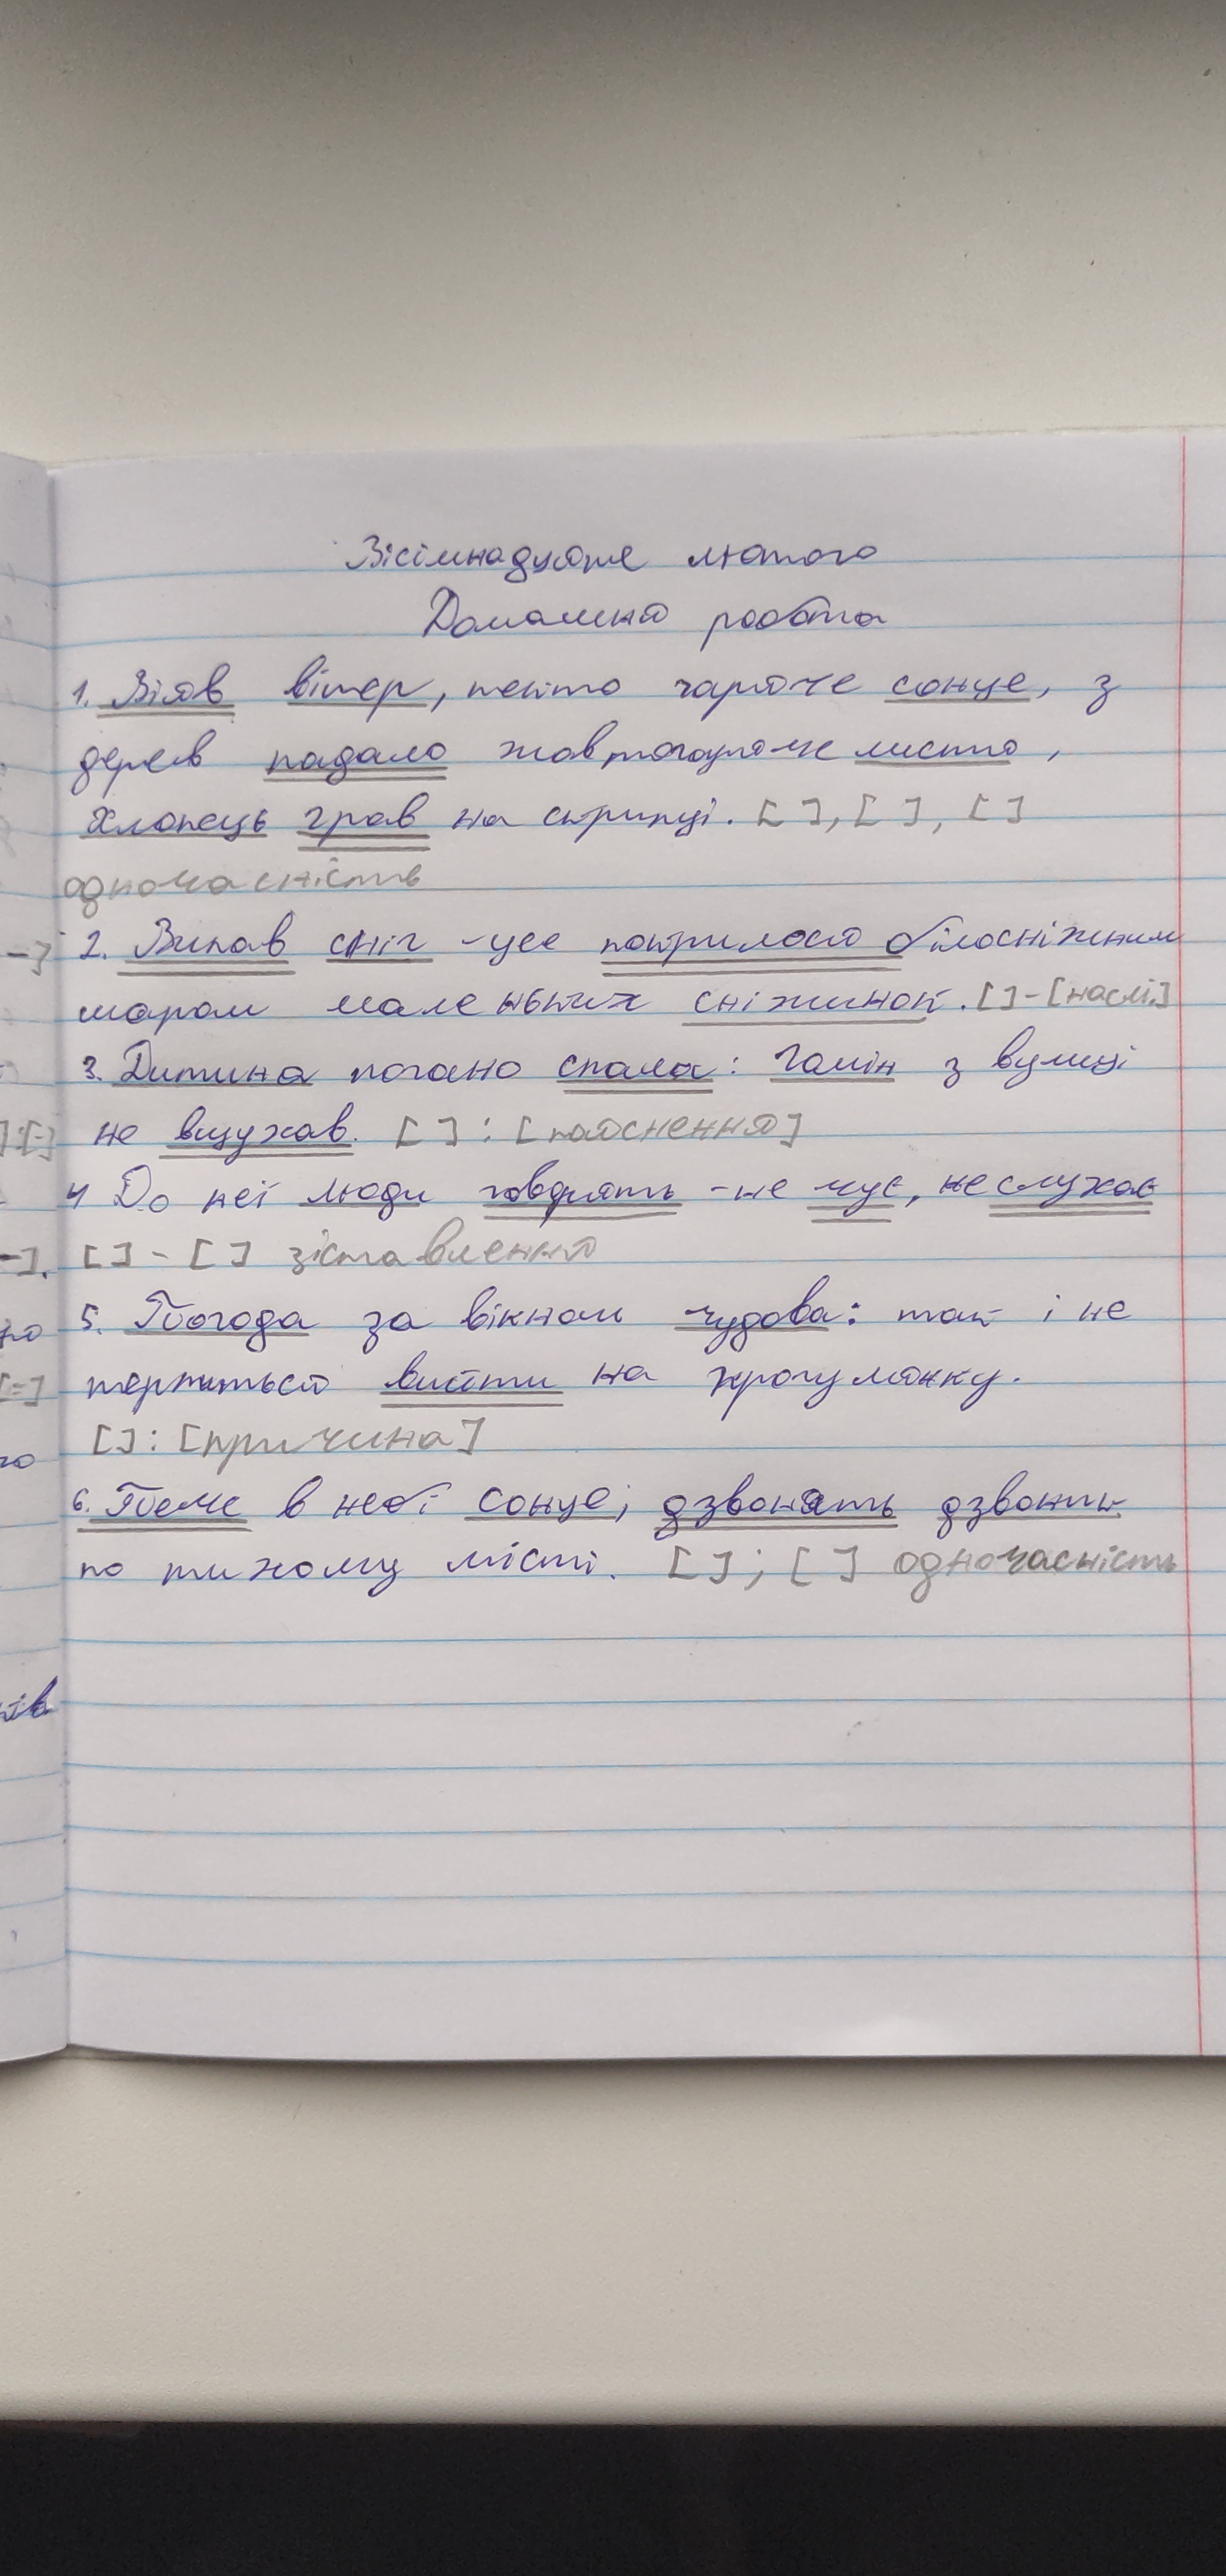 Вісімнадцяте лютого
Домашня робота
1. Віяв вітер, пекло гаряче сонце, з
дерев падало жовтогаряче листя,
хлопець грав на скрипці. [ ], [ ], [ ]
одночасність
2. Випав сніг - усе покрилося білосніжним
шаром маленьких сніжинок. [ ] - [наслі.]
3. Дитина погано спала: галін з вулиці
не вщухав. [ ] : [пояснення]
4 До неї люди говорять - не чує, не слухає
[ ] - [ ] зіставлення
5. Погода за вікном чудова: так і не
терпиться вийти на прогулянку.
[ ] : [причина]
6. Пече в небі сонце; дзвонять дзвони
по тихому місті. [ ] ; [ ] одночасність